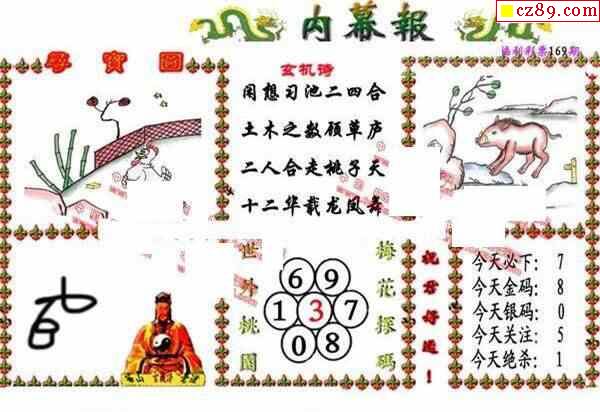 cz89.com
内幕報
福利彩票169期
寻宝圖
玄机诗
闲想习池二四合
土木之数顾草庐
二人合走桃子天
十二华载龙凤舞
世外桃園
6 9
1 3 7
0 8
梅花探码
祝君好运!
今天必下: 7
今天金码: 8
今天银码: 0
今天关注: 5
今天绝杀: 1